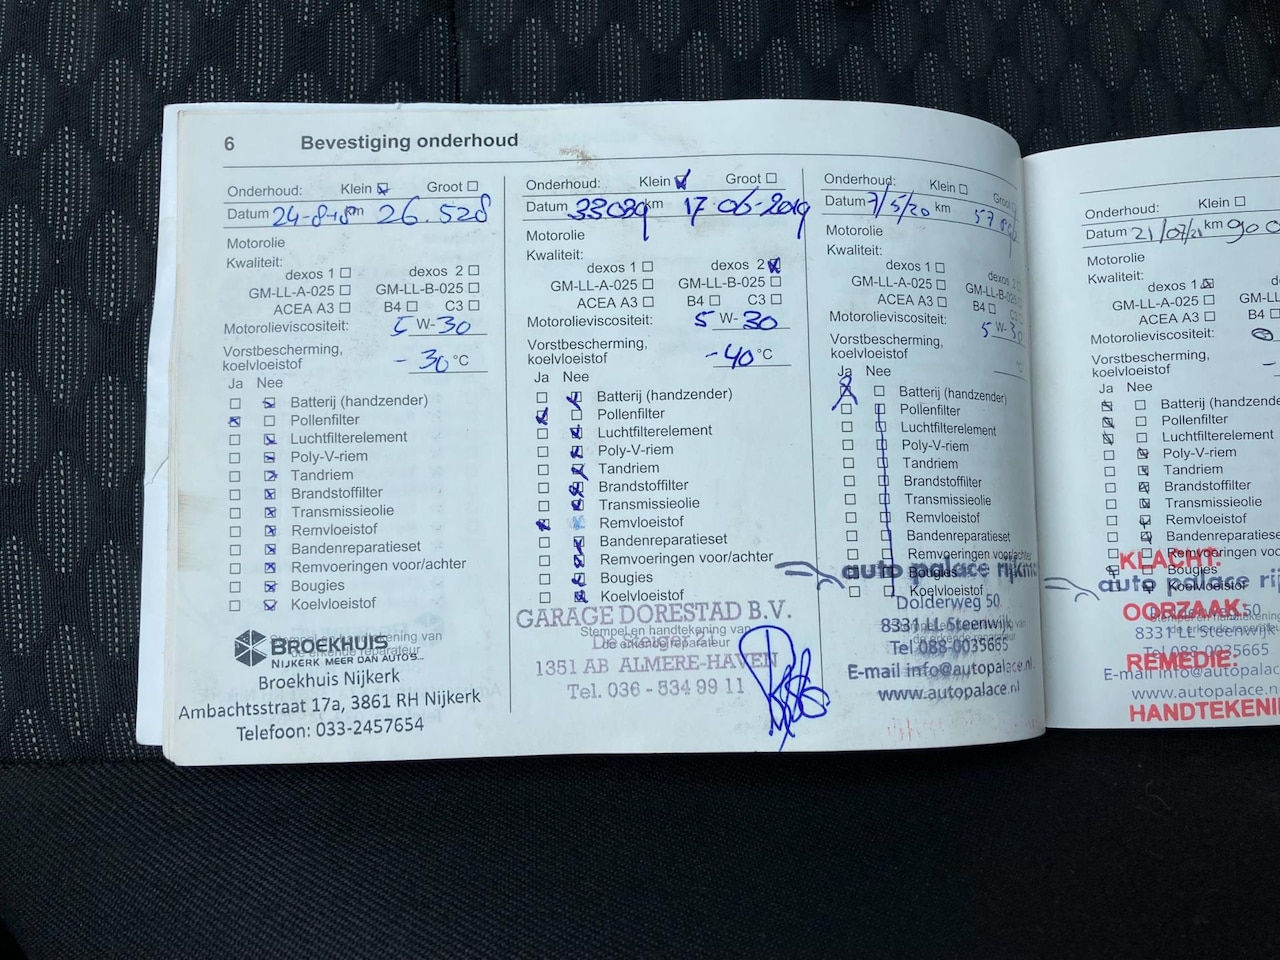 6 Bevestiging onderhoud
Onderhoud: Klein Groot
Datum 24-8-18 km 26.528
Motorolie
Kwaliteit:
dexos 1 dexos 2
GM-LL-A-025 GM-LL-B-025
ACEA A3 B4 C3
Motorolieviscositeit: 5 W-30
Vorstbescherming,
koelvloeistof -30 °C
Ja Nee
Batterij (handzender)
Pollenfilter
Luchtfilterelement
Poly-V-riem
Tandriem
Brandstoffilter
Transmissieolie
Remvloeistof
Bandenreparatieset
Remvoeringen voor/achter
Bougies
Koelvloeistof
Stempel en handtekening van
de erkende reparateur
BROEKHUIS
NIJKERK MEER DAN AUTO'S...
Broekhuis Nijkerk
Ambachtsstraat 17a, 3861 RH Nijkerk
Telefoon: 033-2457654
Onderhoud: Klein Groot
Datum 33089 km 17-06-2019
Motorolie
Kwaliteit:
dexos 1 dexos 2
GM-LL-A-025 GM-LL-B-025
ACEA A3 B4 C3
Motorolieviscositeit: 5 W-30
Vorstbescherming,
koelvloeistof -40 °C
Ja Nee
Batterij (handzender)
Pollenfilter
Luchtfilterelement
Poly-V-riem
Tandriem
Brandstoffilter
Transmissieolie
Remvloeistof
Bandenreparatieset
Remvoeringen voor/achter
Bougies
Koelvloeistof
GARAGE DORESTAD B.V.
Stempel en handtekening van
de erkende reparateur
De Steiger
1351 AB ALMERE-HAVEN
Tel. 036 - 534 99 11
Onderhoud: Klein Groot
Datum 7/5/20 km
Motorolie
Kwaliteit:
dexos 1 dexos
GM-LL-A-025 GM-LL-B-025
ACEA A3 B4 C3
Motorolieviscositeit: 5 W-30
Vorstbescherming,
koelvloeistof °C
Ja Nee
Batterij (handzender)
Pollenfilter
Luchtfilterelement
Poly-V-riem
Tandriem
Brandstoffilter
Transmissieolie
Remvloeistof
Bandenreparatieset
Remvoeringen voor/achter
Bougies
Koelvloeistof
auto palace
Dolderweg 50
8331 LL Steenwijk
de erkende reparateur
Tel 088-0035665
E-mail info@autopalace.nl
www.autopalace.nl
Onderhoud: Klein
Datum 21/07/21 km
Motorolie
Kwaliteit:
dexos 1
GM-LL-A-025 GM-LL
ACEA A3 B4
Motorolieviscositeit:
Vorstbescherming,
koelvloeistof
Ja Nee
Batterij (handzender)
Pollenfilter
Luchtfilterelement
Poly-V-riem
Tandriem
Brandstoffilter
Transmissieolie
Remvloeistof
Bandenreparatieset
Remvoeringen voo
Bougies
Koelvloeistof
KLACHT:
auto palace
OORZAAK:
8331 LL Steenwijk
Tel 088-0035665
REMEDIE:
E-mail info@autopalace
www.autopalace.nl
HANDTEKENI